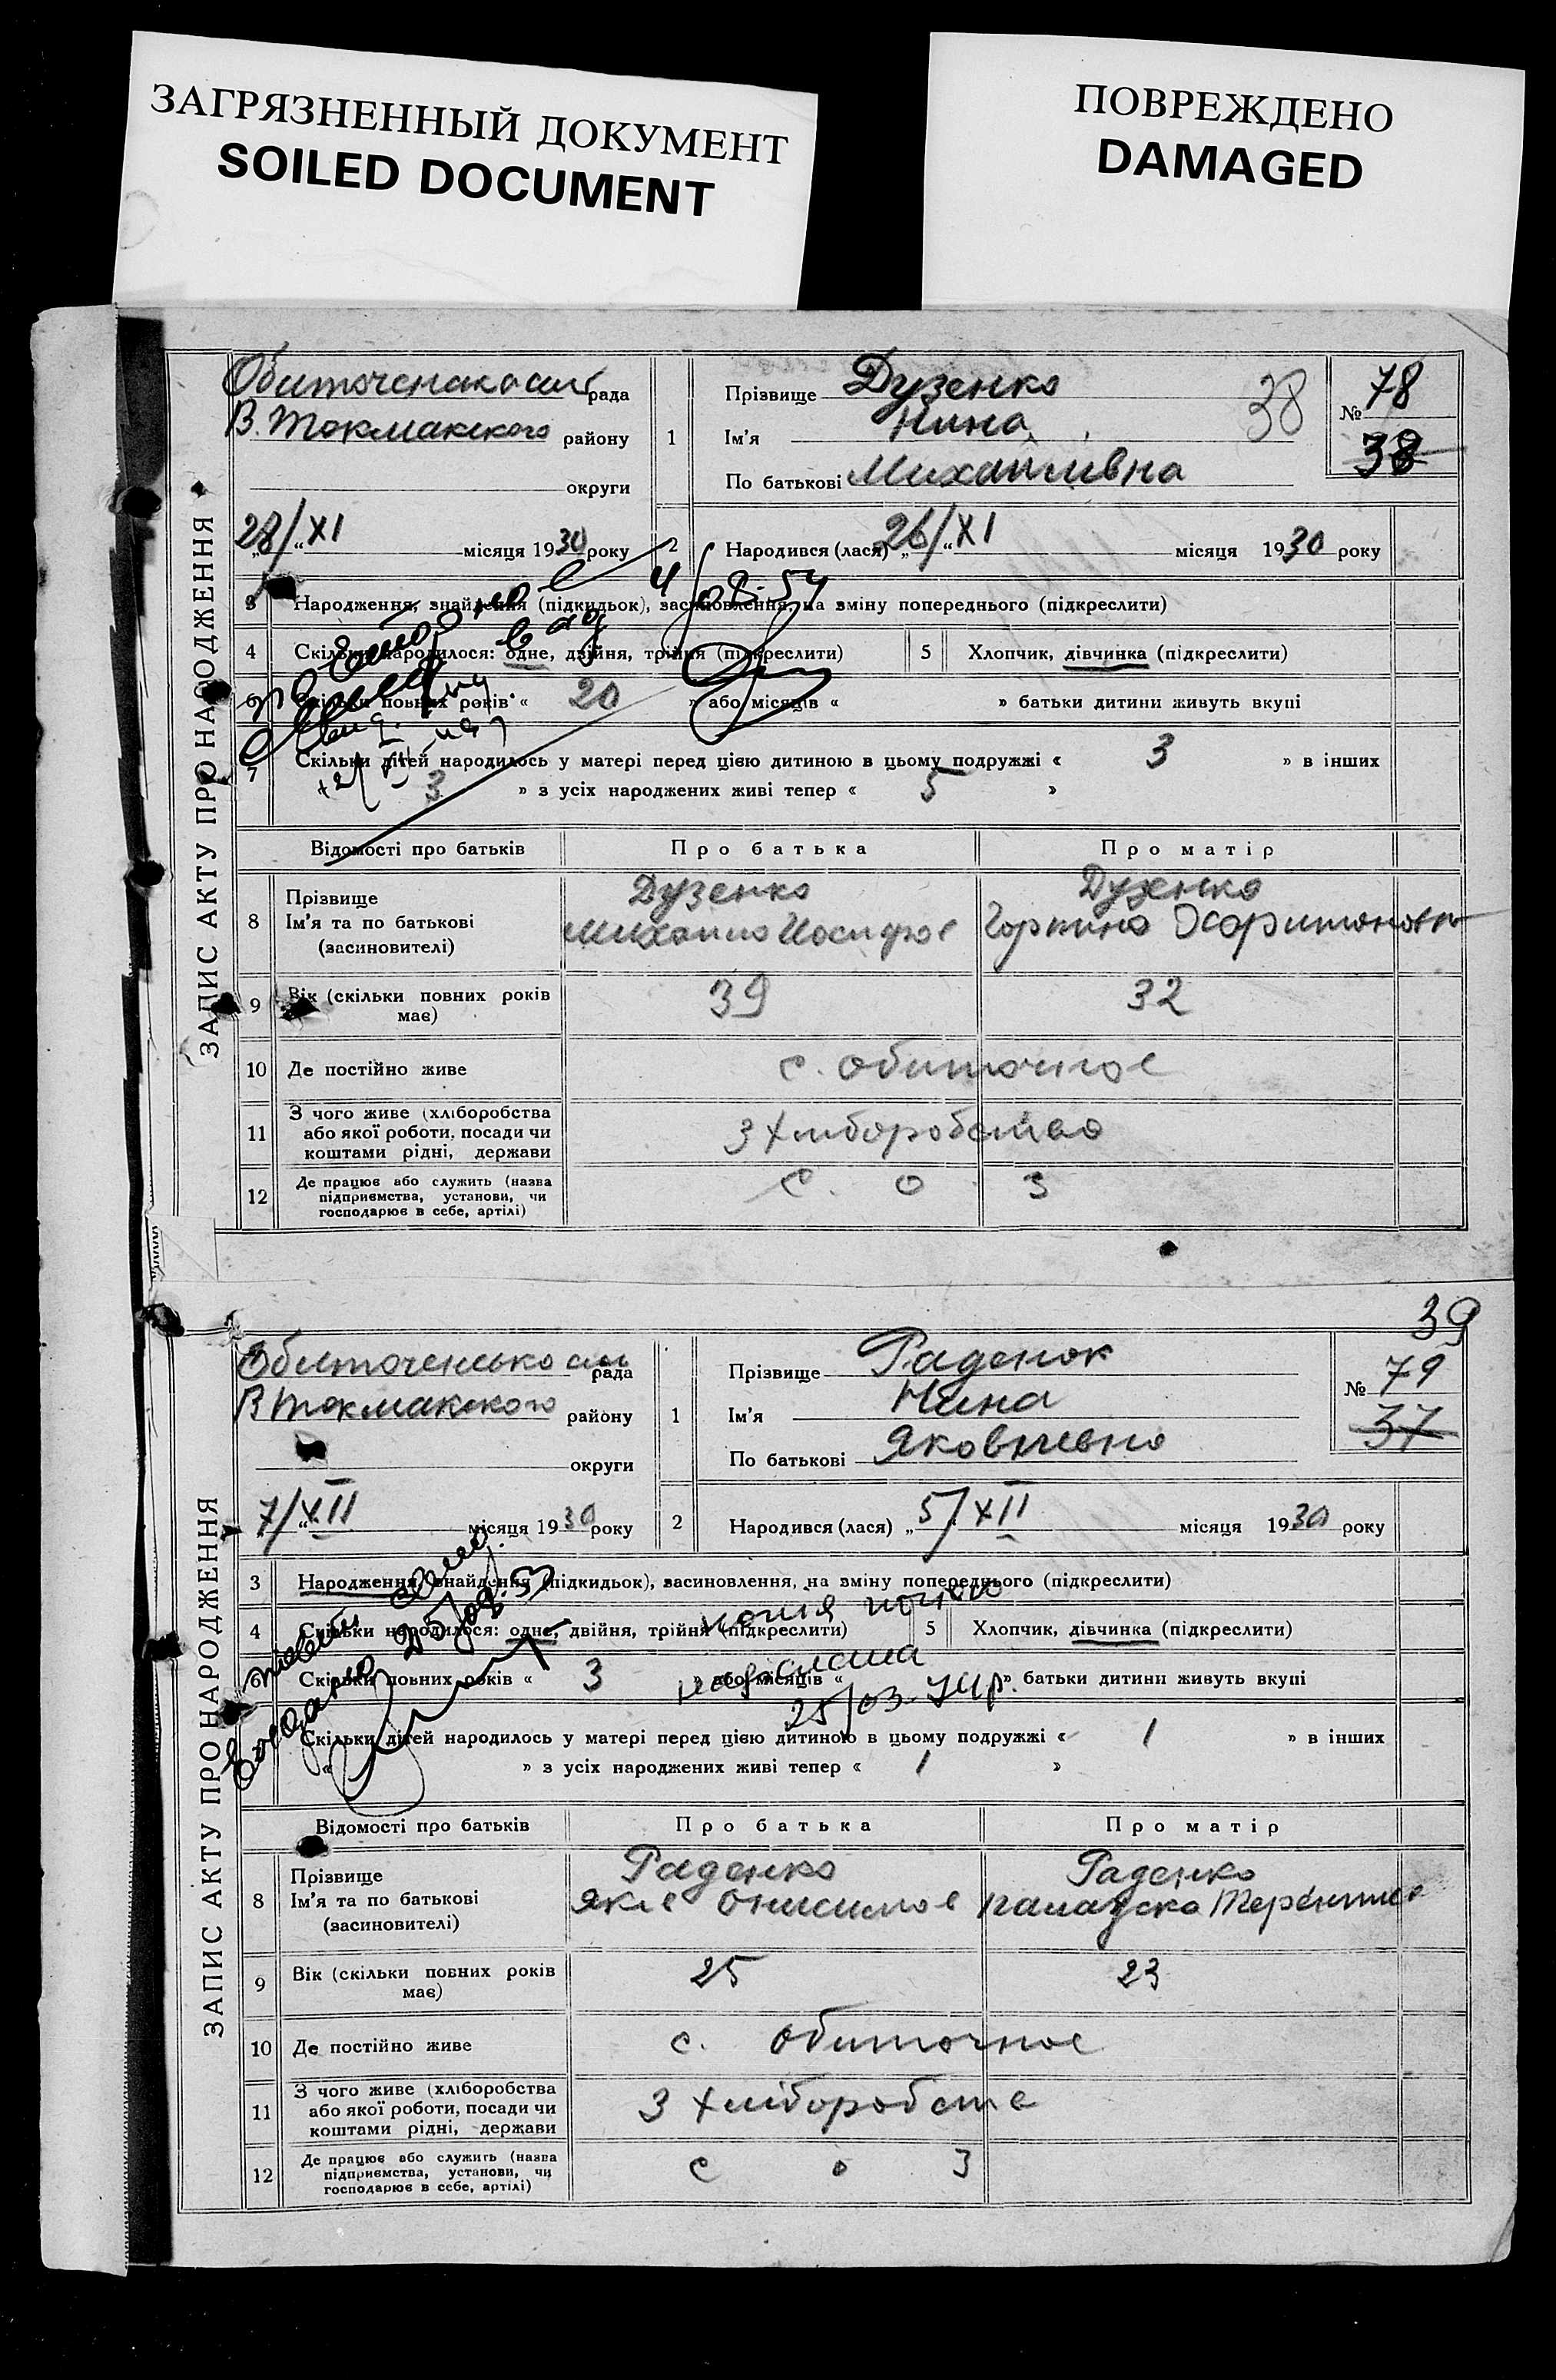 ЗАГРЯЗНЕННЫЙ ДОКУМЕНТ
SOILED DOCUMENT
ПОВРЕЖДЕНО
DAMAGED
ЗАПИС АКТУ ПРО НАРОДЖЕННЯ
рада
В. Токмакского району
округи
28/XI місяця 1930 року
1 Прізвище Дузенко
Ім'я Нина
По батькові Михайлівна
38
№ 78
38
2 Народився (лася) „26/“ XI місяця 1930 року
3 Народження, знайдення (підкидьок), засиновлення, на зміну попереднього (підкреслити)
4 Скільки народилося: одне, двійня, трійня (підкреслити)
5 Хлопчик, дівчинка (підкреслити)
6 Скільки повних років « 20 » або місяців « » батьки дитини живуть вкупі
7 Скільки дітей народилось у матері перед цією дитиною в цьому подружжі « 3 » в інших
3 » з усіх народжених живі тепер « 5 »
4/08-54
Відомості про батьків Про батька Про матір
8 Прізвище
Ім'я та по батькові
(засиновителі)
Дузенко
Михаило Иосифов
Дузенко
Горпина Харитоновн
9 Вік (скільки повних років має) 39 32
10 Де постійно живе с. Обиточное
11 З чого живе (хліборобства
або якої роботи, посади чи
коштами рідні, держави
З Хліборобства
12 Де працює або служить (назва
підприємства, установи, чи
господарює в себе, артілі)
С. О З
39
ЗАПИС АКТУ ПРО НАРОДЖЕННЯ
рада
В Токмакского району
округи
7/XII місяця 1930 року
1 Прізвище Раденок
Ім'я Нина
По батькові Яковлевна
№ 79
37
2 Народився (лася) „5/ XII місяця 1930 року
3 Народження, знайдення (підкидьок), засиновлення, на зміну попереднього (підкреслити)
4 Скільки народилося: одне, двійня, трійня (підкреслити)
5 Хлопчик, дівчинка (підкреслити)
6 Скільки повних років « 3 » або місяців « » батьки дитини живуть вкупі
Скільки дітей народилось у матері перед цією дитиною в цьому подружжі « 1 » в інших
« » з усіх народжених живі тепер « 1 »
копія
надіслана
Відомості про батьків Про батька Про матір
8 Прізвище
Ім'я та по батькові
(засиновителі)
Раденко
Яків Онисимов
Раденко
9 Вік (скільки повних років має) 25 23
10 Де постійно живе с. Обиточное
11 З чого живе (хліборобства
або якої роботи, посади чи
коштами рідні, держави
З Хліборобств
12 Де працює або служить (назва
підприємства, установи, чи
господарює в себе, артілі)
С О З